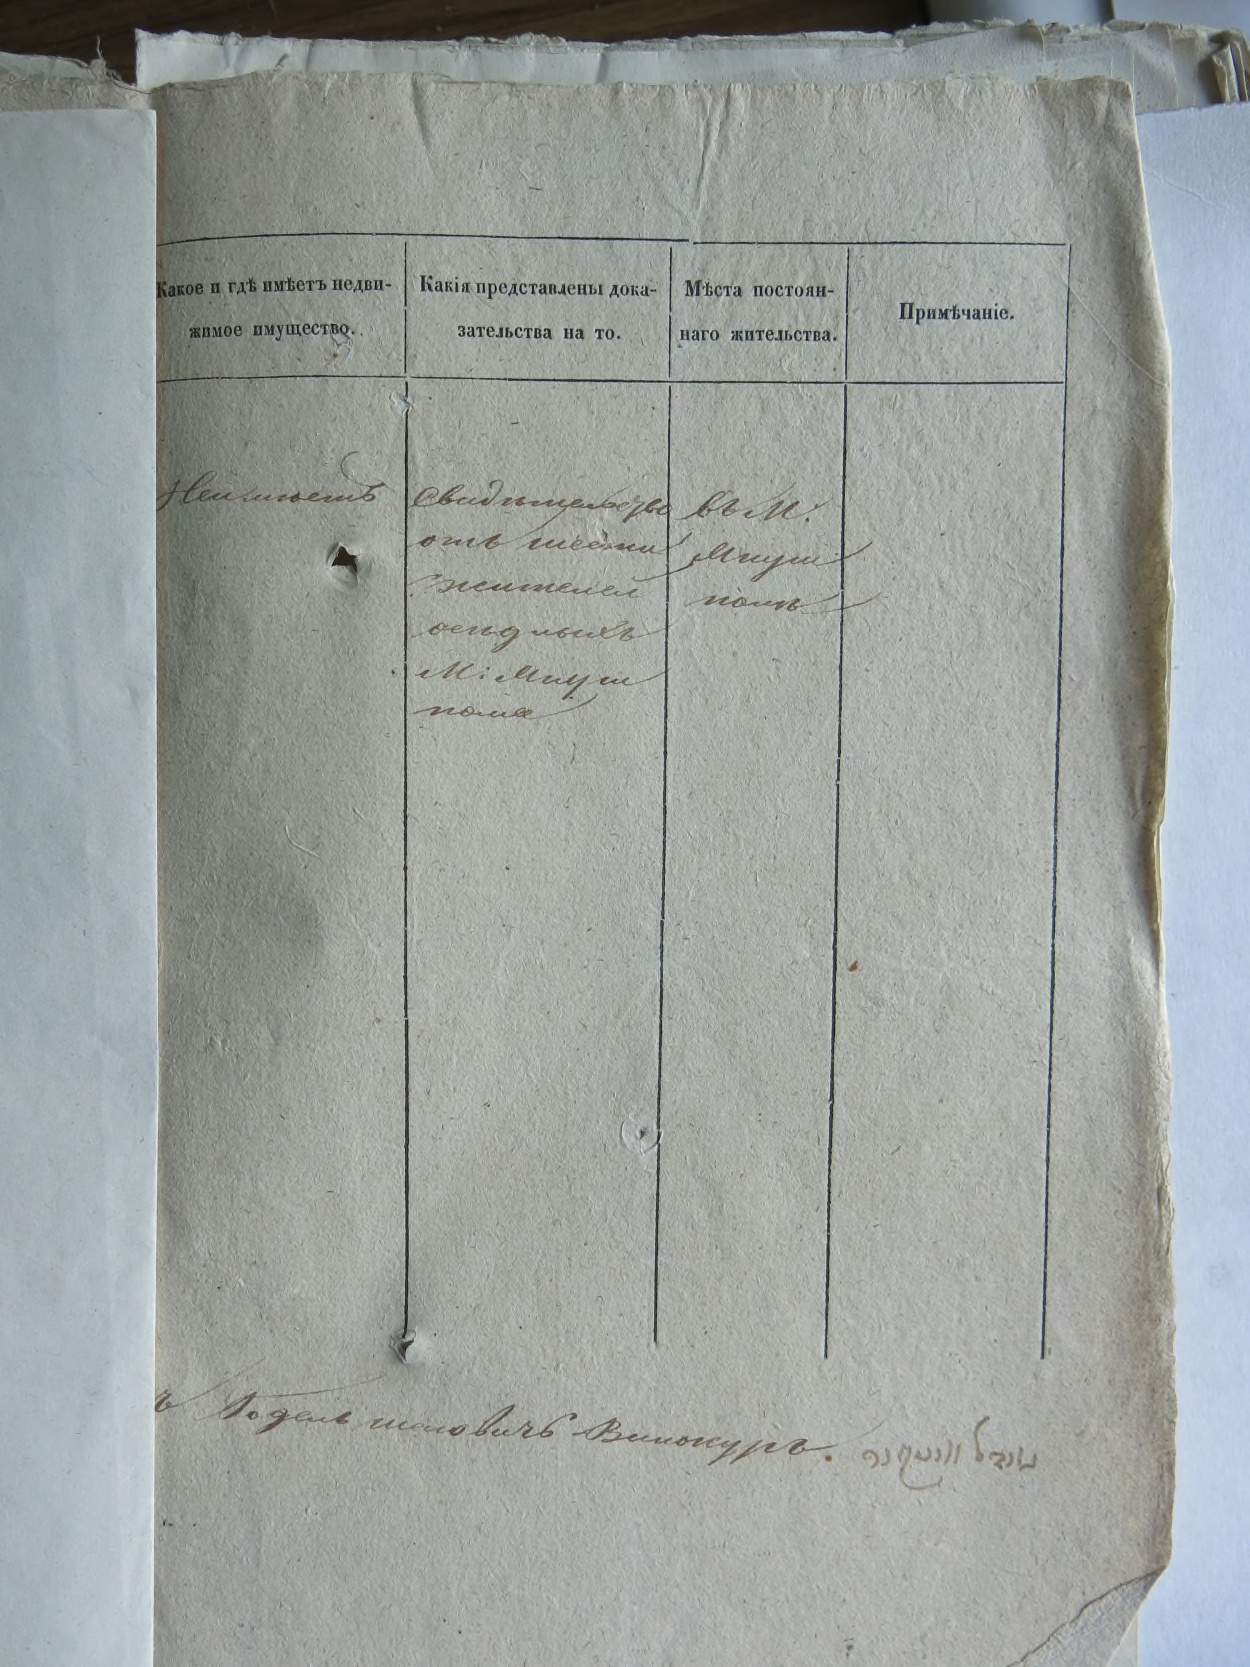 Какое и гдѣ имѣетъ недви-
жимое имущество.
Какія представлены дока-
зательства на то.
Мѣста постоян-
наго жительства.
Примѣчаніе.
Неимѣетъ
Свидѣтельство
отъ шести
жителей
осѣдлыхъ
М:
въ М:
ъ Годель Винокуръ.
גודל